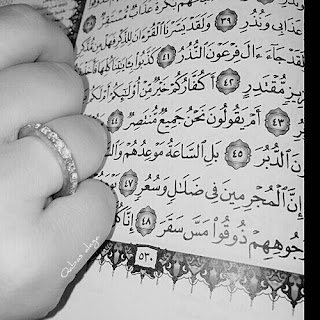 بُكْرَةً عَذَابٌ مُّسْتَقِرٌّ
عَذَابِي وَنُذُرِ ٣٩ وَلَقَدْ يَسَّرْنَا الْقُرْءَانَ لِلذِّكْرِ فَهَلْ
لَقَدْ جَآءَ ءَالَ فِرْعَوْنَ النُّذُرُ ٤١ كَذَّبُوا بِـَٔايَٰتِنَا كُلِّهَا
مُّقْتَدِرٍ ٤٢ أَكُفَّارُكُمْ خَيْرٌ مِّنْ أُو۟لَٰٓئِكُمْ
٤٣ أَمْ يَقُولُونَ نَحْنُ جَمِيعٌ مُّنتَصِرٌ ٤٤
نَ الدُّبُرَ ٤٥ بَلِ السَّاعَةُ مَوْعِدُهُمْ وَالسَّ
إِنَّ الْمُجْرِمِينَ فِي ضَلَٰلٍ وَسُعُرٍ ٤٧
جُوهِهِمْ ذُوقُوا مَسَّ سَقَرَ ٤٨ إِنَّا كُ
٥٣٠